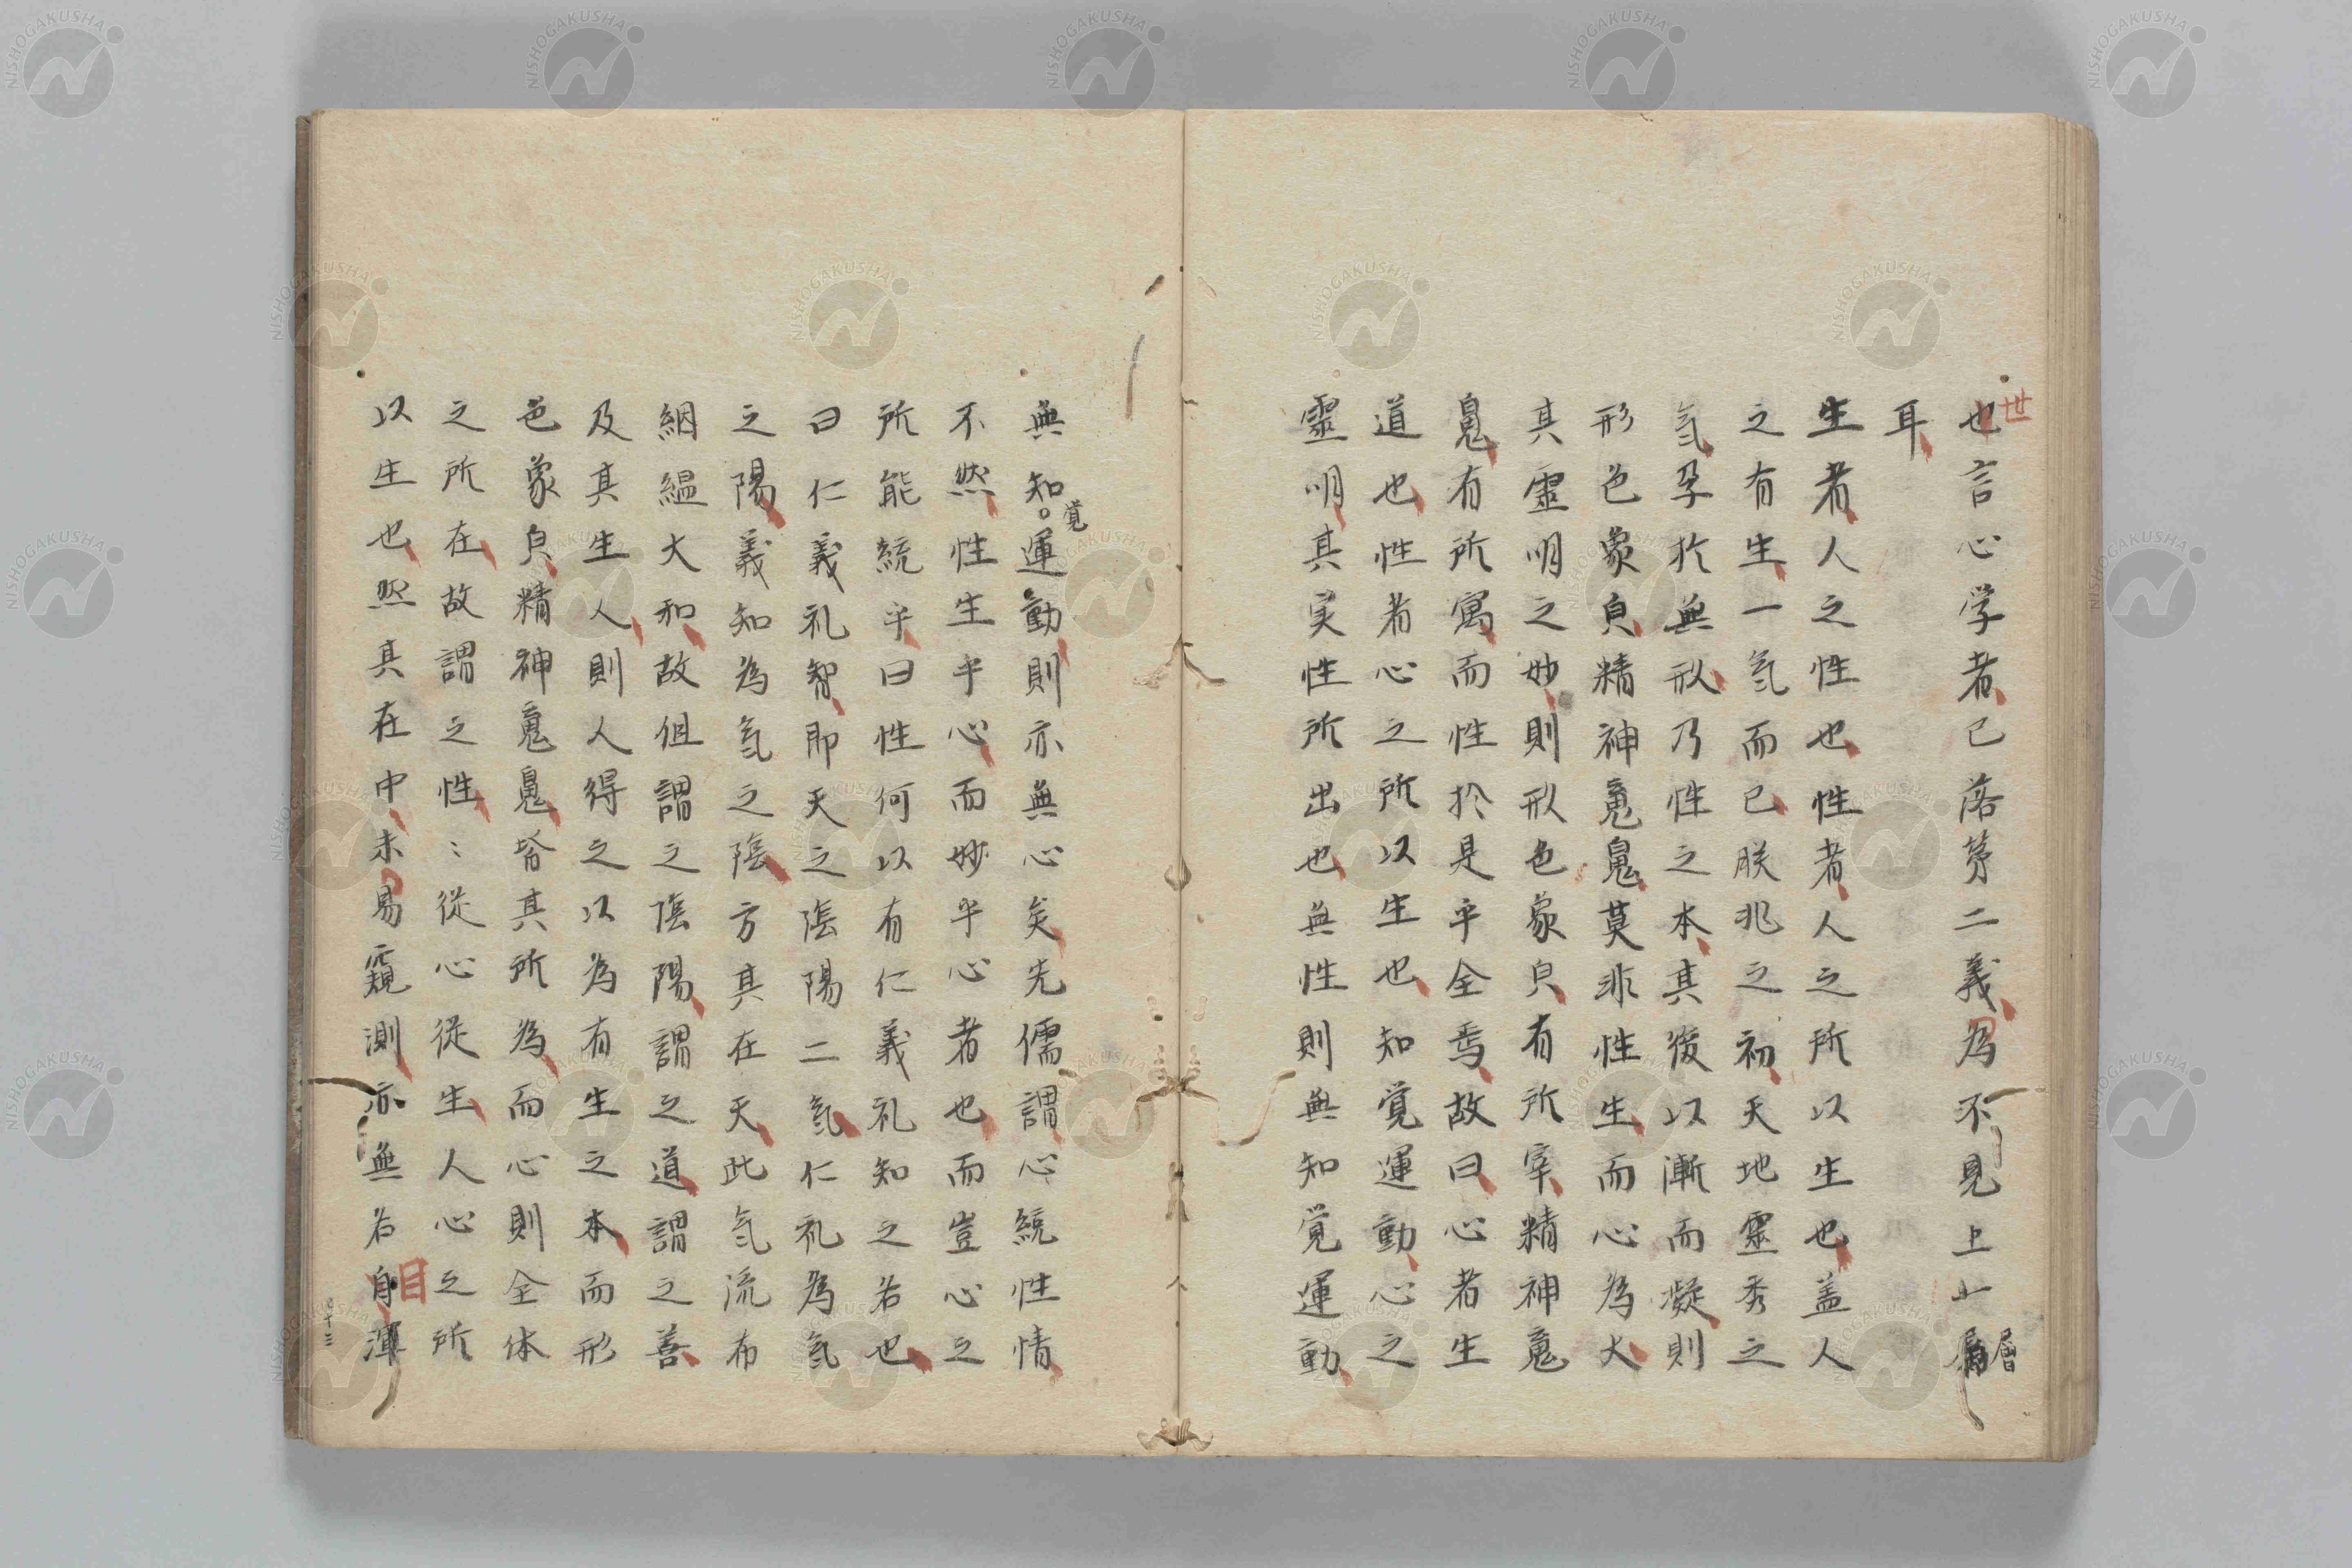 也言心学者已落茅二義為不見上一層
世
層
耳
生者人之性也性者人之所以生也盖人
之有生一氣而已朕兆之初天地靈秀之
氣孕於無形乃性之本其後以漸而凝則
形色象皃精神䰟鬼莫非性生而心為大
其靈明之妙則形色象皃有所宰精神䰟
鬼有所寓而性於是乎全焉故曰心者生
道也性者心之所以生也知覚運動心之
靈明其実性所出也無性則無知覚運動
無知。運動則亦無心矣先儒謂心統性情
覚
不然性生乎心而妙乎心者也而豈心之
所能統乎曰性何以有仁義礼知之名也
曰仁義礼智即天之陰陽二氣仁礼為氣
之陽義知為氣之陰方其在天此氣流布
絪縕大和故但謂之陰陽謂之道謂之善
及其生人則人得之以為有生之本而形
色象皃精神䰟鬼皆其所為而心則全体
之所在故謂之性〻從心從生人心之所
以生也然其在中未易窺測亦無名自渾
目
七十三
NISHOGAKUSHA